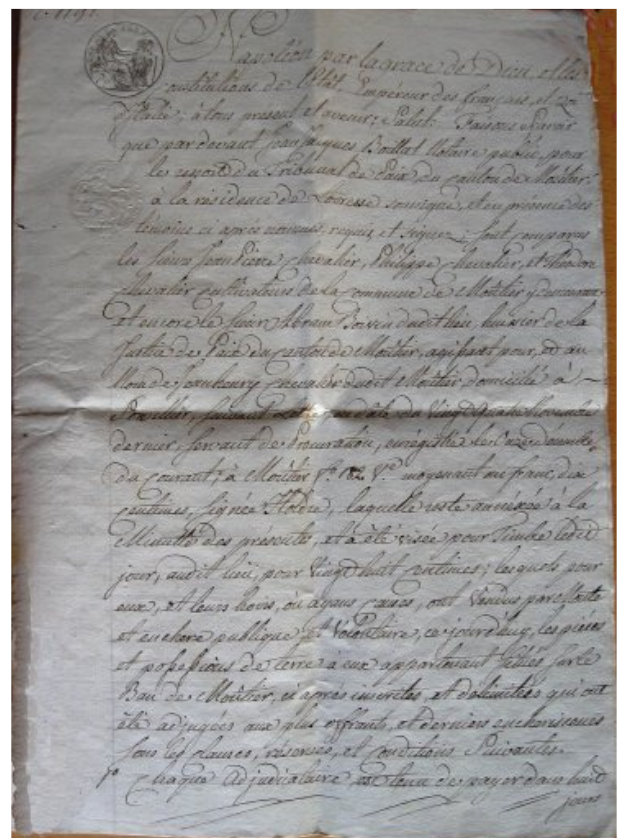 Napoléon par la grace de Dieu et les
constitutions de l'Etat, Empereur des français, et Roi
d'Italie; à tous présent et avenir; Salut. Faisons Savoir
que par devant Jean Jaques Boillat Notaire public, pour
le ressort du Tribunal de Paix du canton de Moûtier,
à la résidence de Loveresse soussigné, et en présence des
témoins ci après nommés, requis, et signez; sont comparus
les sieurs Jean Pierre Chevalier, Philippe Chevalier, et
Chevalier cultivateurs de la commune de Moûtier y demeurant
et encore le sieur Abram Boivin dudit lieu, huissier de la
Justice de Paix du canton de Moûtier, agissant pour, et au
Nom de Jean henry Chevalier dudit Moûtier domicilié à
suivant Lettre en date du Vingt quatre Novembre
dernier, servant de Procuration, enrégistrée le
du courant, à Moûtier moyenant un franc, dix
centimes, signée laquelle reste annexée à la
Minutte des présentes, et a été visée pour Timbre ledit
jour, audit lieu, pour Vingt huit centimes; lesquels pour
eux, et leurs hoirs, où ayans causes, ont Vendus par Monte
et enchere publique et Volontaire, cejourd'huy, les pieces
et possessions de terre à eux appartenant sur le
Ban de Moûtier, ci après inscrites, et délimitées qui ont
été adjugées aux plus offrants, et derniers encherisseurs
sous les clauses, réserves, et conditions Suivantes.
1° Chaque Adjudicataire est tenu de payer dans huit
jours